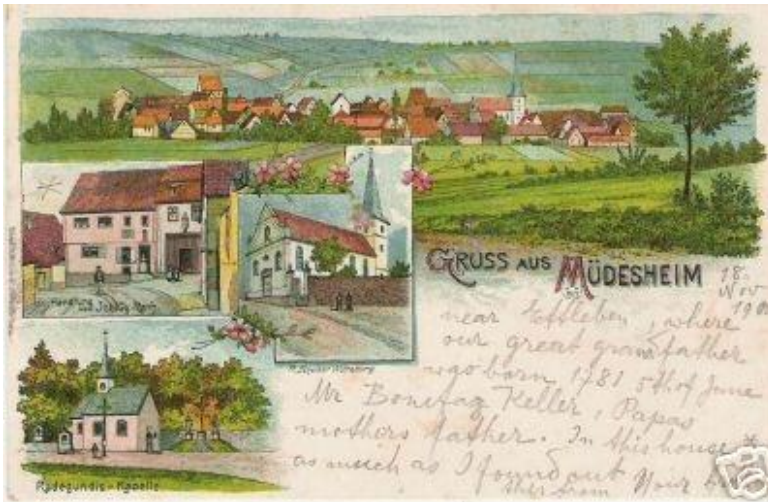 GRUSS AUS MÜDESHEIM
18.
Nov
near Ettleben, where
our great grandfather
was born, 1781 5th of June
Mr Bonifaz Keller, Papas
mothers father. In this house *
as much as I found out Your
Handlung von
Radegundis-Kapelle